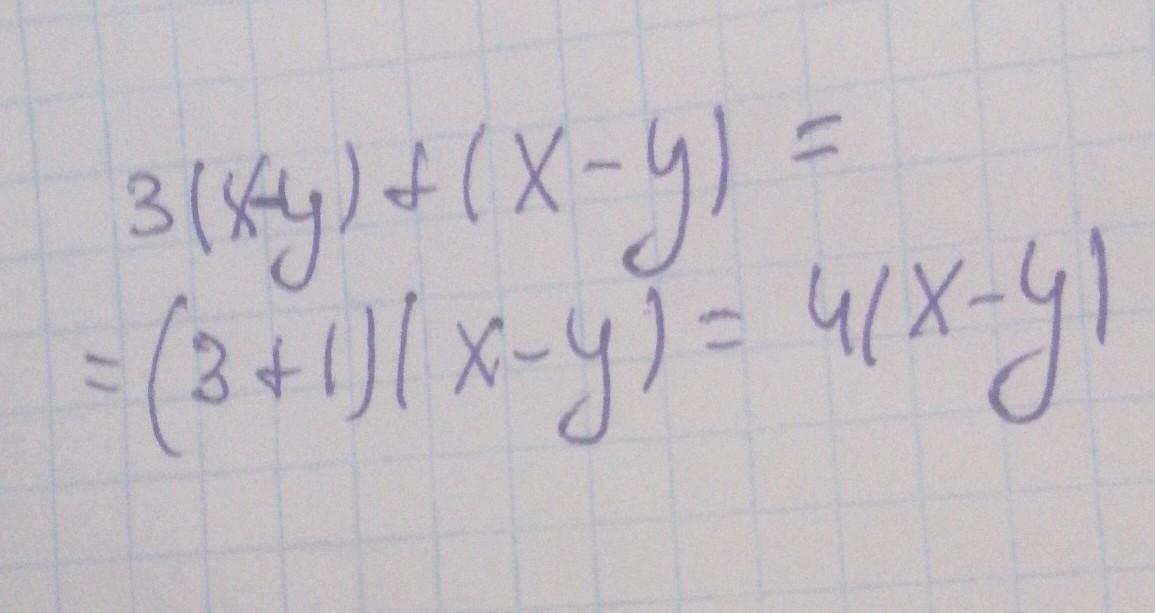 3(x-y)+(x-y)=
=(3+1)(x-y)=4(x-y)